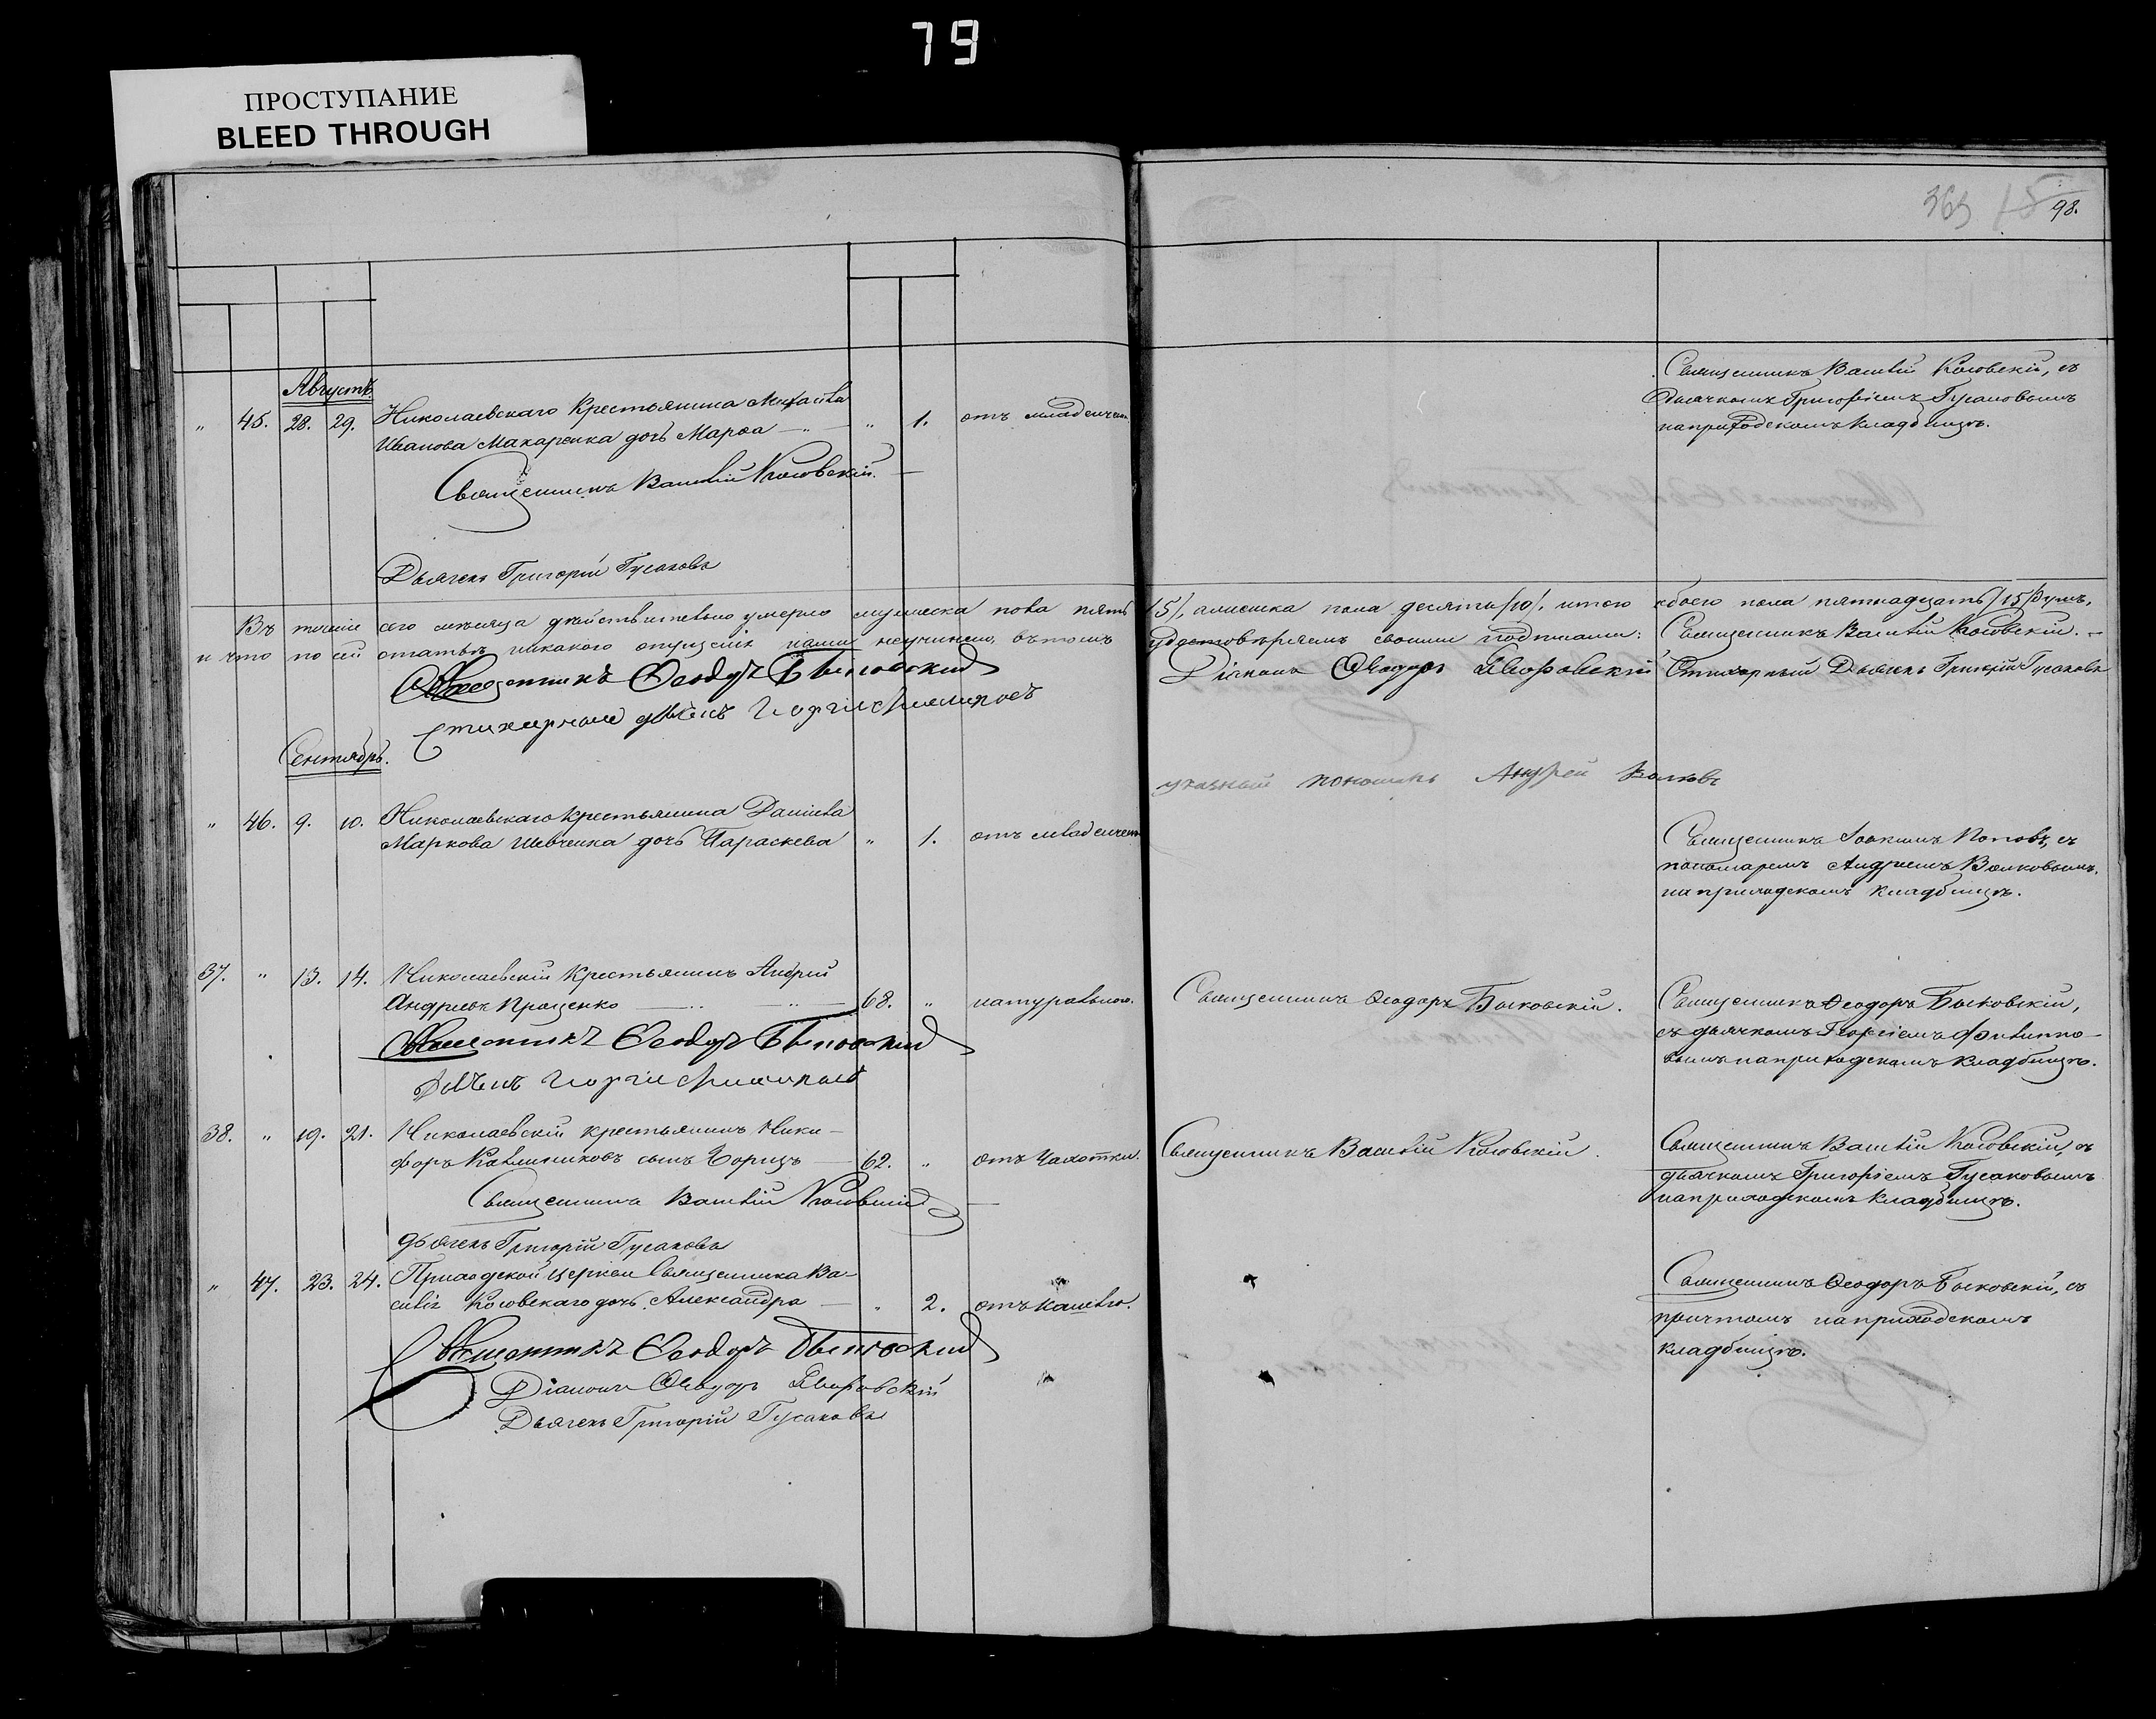 79
ПРОСТУПАНИЕ
BLEED THROUGH
363 15 98.
Августъ
„ 45. 28. 29. Николаевскаго крестьянина Михаила „ 1. отъ младенчес
Иванова Макаренка дочь Марѳа
Священникъ Василій Косовскій, съ
дьячкомъ Григоріемъ Гусаковымъ
на приходскомъ кладбищѣ.
Священникъ Василій Косовскій.
Дьячекъ Григорій Гусаковъ
Въ теченіи сего мѣсяца дѣйствительно умерло мужеска пола пять /5/, а женска пола десять /10/, итого обоего пола пятнадцать /15/ душъ,
и что по сей статьѣ никакого опущенія нами неучинено, въ томъ удостовѣряемъ своими подписами: Священникъ Василій Косовскій.
Священникъ Ѳеодоръ Быковскій Діаконъ Ѳеодоръ Яворовскій Стихарный Дьячекъ Григорій Гусаковъ
Стихарный дьячекъ Георгій Филиповъ
указный пономарь Андрей Волковъ
Сентябрь.
„ 46. 9. 10. Николаевскаго крестьянина Даніила
Маркова Шевченка дочь Параскева „ 1. отъ младенчес
Священникъ Іоакимъ Поповъ, съ
пономаремъ Андреемъ Волковымъ,
на приходскомъ кладбищѣ.
37. „ 13. 14. Николаевскій крестьянинъ Андрей
Андреевъ Проценко 68. „ натурально. Священникъ Ѳеодоръ Быковскій.
Священникъ Ѳеодоръ Быковскій,
съ дьячкомъ Георгіемъ Филиппо-
вымъ на приходскомъ кладбищѣ.
Священникъ Ѳеодоръ Быковскій
дьячекъ Георгій Филиповъ
38. „ 19. 21. Николаевскій крестьянинъ Ники-
форъ сынъ 62. „ отъ чахотки. Священникъ Василій Косовскій.
Священникъ Василій Косовскій, съ
дьячкомъ Григоріемъ Гусаковымъ
на приходскомъ кладбищѣ.
Священникъ Василій Косовскій
дьячекъ Григорій Гусаковъ
„ 47. 23. 24. Приходской церкви Священника Ва-
силія Косовскаго дочь Александра „ 2. отъ кашлю.
Священникъ Ѳеодоръ Быковскій, съ
причтомъ на приходскомъ
кладбищѣ.
Священникъ Ѳеодоръ Быковскій
Діаконъ Ѳеодоръ Яворовскій
Дьячекъ Григорій Гусаковъ